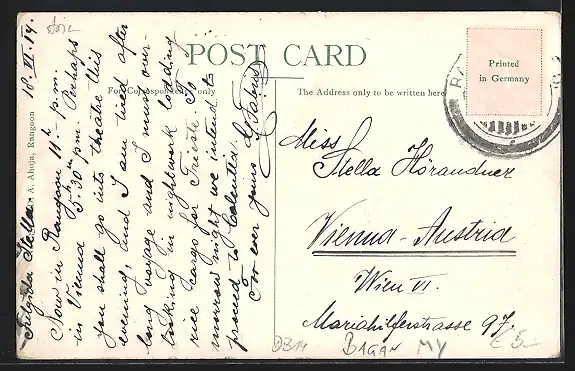 POST CARD
For Correspondence only
The Address only to be written here
Printed
in Germany
A. Ahuja, Rangoon
18.VI.14.
Stella
Now in Rangoon 11h p.m.
in Vienna 5h 30m p.m. Perhaps
you shall go into theatre this
evening, and I am tired after
long voyage and I must over-
looking in nightwork loading
rice cargo for Trieste. To
morrow night we intend to
proceed to Calcutta.
For ever yours
Miss
Stella Hörandner
Vienna-Austria
Wien VI.
Mariahilferstrasse 97.
BAGAN MY